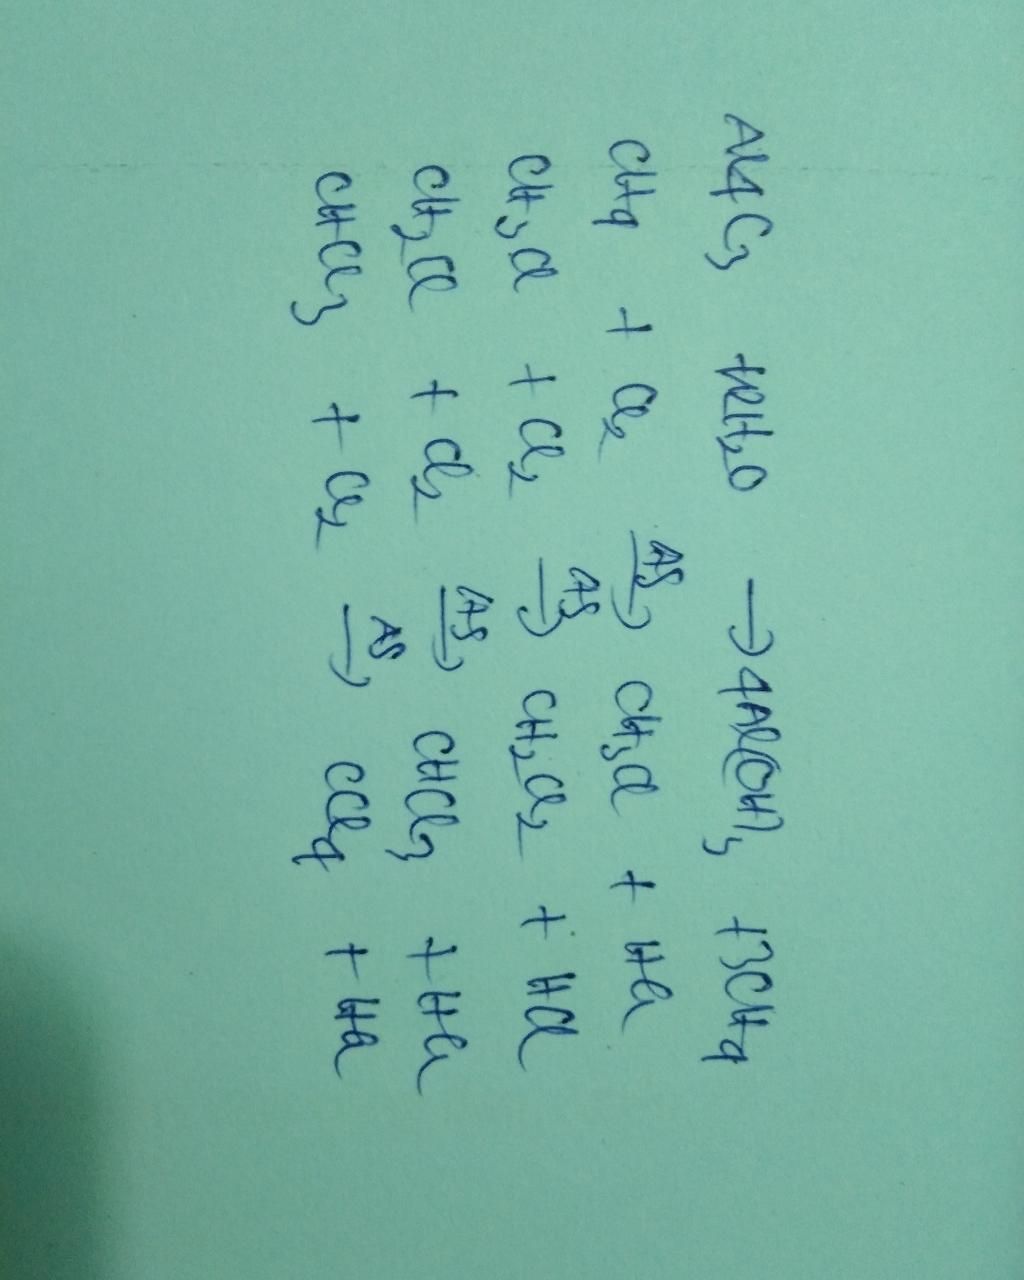 Al4C3 +12H2O → 4Al(OH)3 +3CH4
CH4 + Cl2 →AS CH3Cl + HCl
CH3Cl + Cl2 →AS CH2Cl2 + HCl
CH2Cl + Cl2 →AS CHCl3 + HCl
CHCl3 + Cl2 →AS CCl4 + HCl